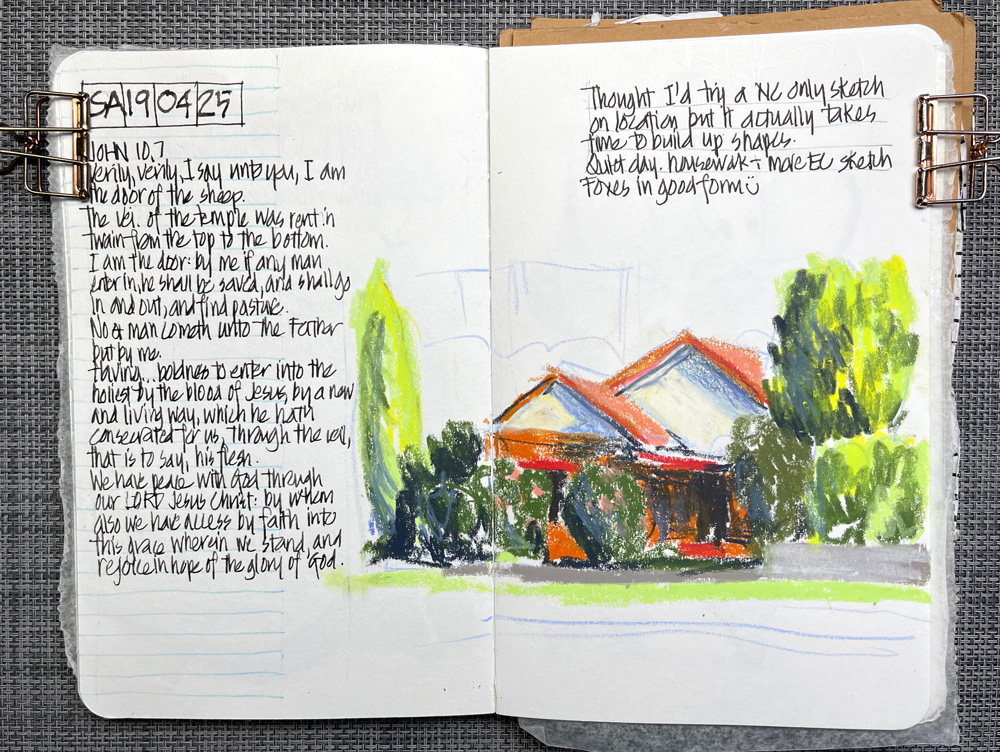 SA 19 04 25
JOHN 10.7
Verily, verily, I say unto you, I am
the door of the sheep.
The veil of the temple was rent in
twain from the top to the bottom.
I am the door: by me if any man
enter in, he shall be saved, and shall go
in and out, and find pasture.
No man cometh unto the Father
but by me.
Having... boldness to enter into the
holiest by the blood of Jesus, by a new
and living way, which he hath
consecrated for us, through the veil,
that is to say, his flesh.
We have peace with God through
our LORD Jesus Christ: by whom
also we have access by faith into
this grace wherein we stand, and
rejoice in hope of the glory of God.
Thought I'd try a NC only sketch
on location but it actually takes
time to build up shapes.
Quiet day. housework + more EU sketch
Foxes in good form